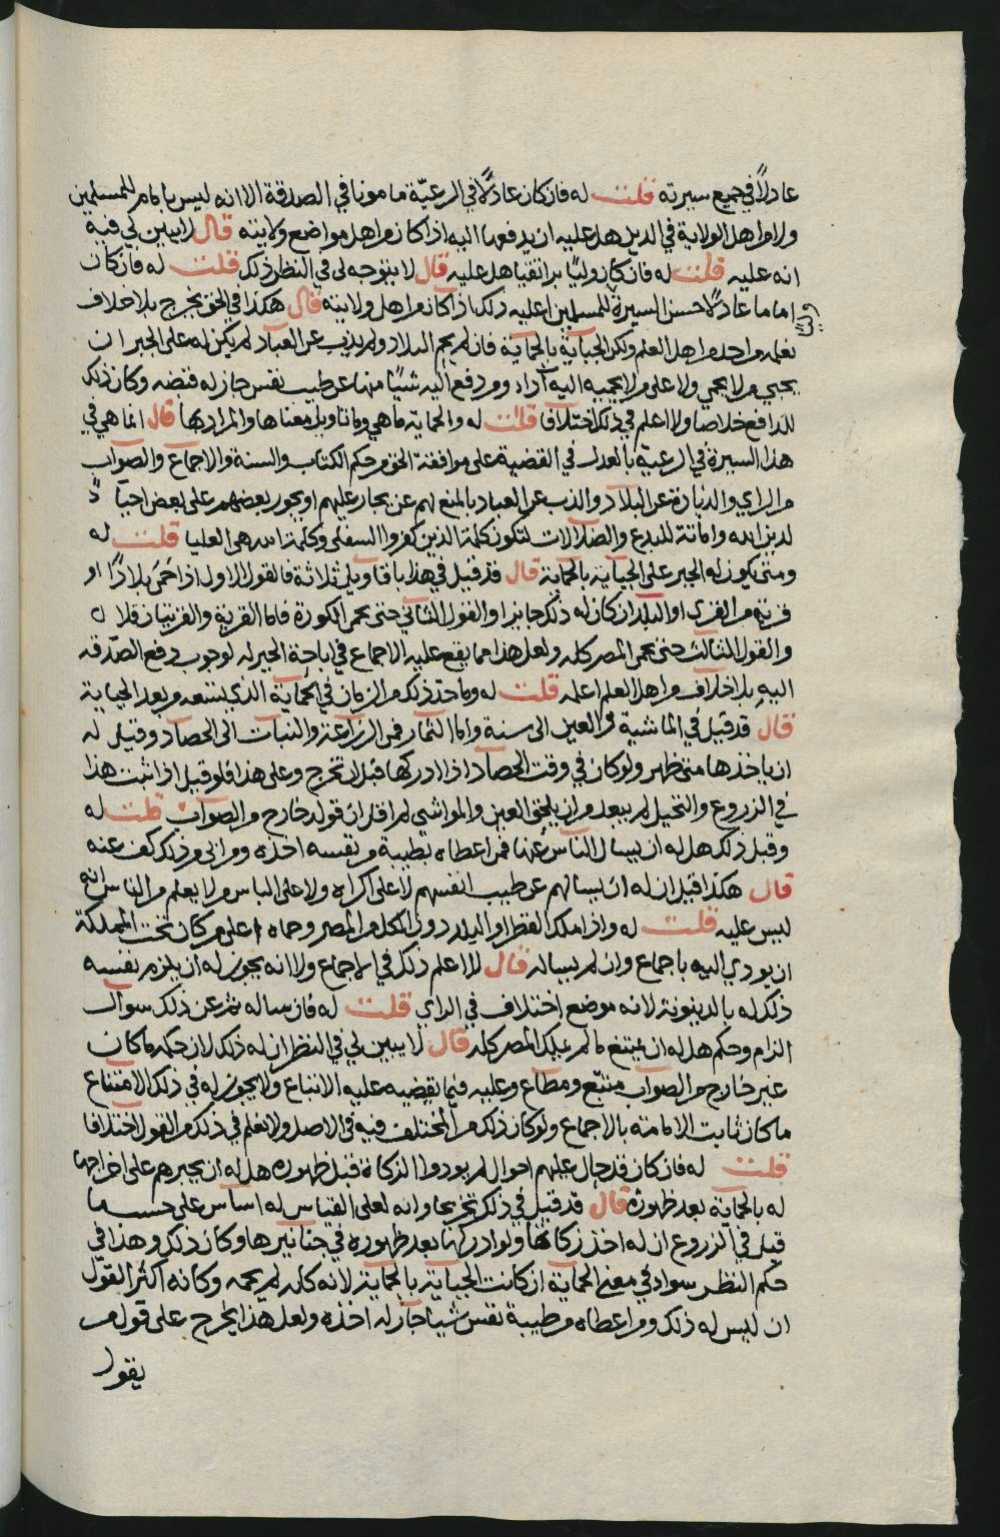 عادلًا في جميع سيرته قلت له فان كان عادلًا في الرعيّة مامونا في الصدقة الا انه ليس بامام للمسلمين
ولا من اهل الولاية في الدين هل عليه ان يدفعها اليه اذا كان من اهل مواضع ولايته قال لا يبين لي فيه
انه عليه قلت له فان كان وليًا برا تقيا هل عليه قال لا يتوجه لي في النظر ذلك قلت له فان كان
اماما عادلًا حسن السيرة للمسلمين اعليه ذلك اذا كان من اهل ولايته قال هكذا في الحق يخرج بلا خلاف
نعلمه من احد من اهل العلم ولكن الجباية بالحماية فان لم يحم البلاد ولم يذب عن العباد لم يكن له على الجبر ان
يجبي من لا يحمي ولا على من لا يحميه اليه اداء ومن دفع اليه شيئًا منها عن طيب نفس جاز له قبضه وكان ذلك
للدافع خلاصا ولا اعلم في ذلك اختلافا قلت له والحماية ما هي وما تاويل معناها والمراد بها قال انما هي في
هذا السيرة في الرعية بالعدل في القضية على موافقة الحق من حكم الكتاب والسنة والاجماع والصواب
من الراي والذيادة عن البلاد والذب عن العباد بالمنع لهم عن يجار عليهم او يجور بعضهم على بعض احياءً
لدين الله واماتة للبدع والضلالات لتكون كلمة الذين كفروا السفلى وكلمة الله هي العليا قلت له
ومتى يكون له الجبر على الجباية بالحماية قال قد قيل في هذا باقاويل ثلاثة فالقول الاول اذا حمى بلادًا او
قرية من القرى او البلدان كان له ذلك جايزا والقول الثاني حتى يحمي الكورة فاما القرية والقريتان فلا
والقول الثالث حتى يحمي المصر كله ولعل هذا مما يقع عليه الاجماع في اباحة الجبر له لوجوب دفع الصدقه
اليه بلا خلاف من اهل العلم اعلمه قلت له وما حد ذلك من الزمان في الحماية الذي يسعه من بعد الجباية
قال قد قيل في الماشية والعين الى سنة واما الثمار فمن الزراعة والنبات الى الحصاد وقيل له
ان ياخذها متى ظهر ولو كان في وقت الحصاد اذا ادركها قبل ان تخرج وعلى هذا فلو قيل اذا ثبت هذا
في الزروع والنخيل لم يبعد من ان يلحق العين والمواشي لم اقل ان قوله خارج من الصواب قلت له
وقبل ذلك هل له ان يسال الناس عنها فمن اعطاه بطيبة من نفسه اخذه ومن ابى من ذلك كف عنه
قال هكذا قيل ان له ان يسالهم عن طيب انفسهم لا على اكراه ولا على الباس من لا يعلم من الناس انه
ليس عليه قلت له واذا ملك القطر او البلد دون الكل من المصر وحماه اعلى من كان تحت المملكة
ان يودي اليه باجماع وان لم يساله قال لا اعلم ذلك في الاجماع ولا انه يجوز له ان يلزم نفسه
ذلك له بالدينونة لانه موضع اختلاف في الراي قلت له فان ساله ثم عن ذلك سوال
الزام وحكم هل له ان يمتنع ما لم يملك المصر كله قال لا يبين لي في النظر ان له ذلك لان حكمه ما كان
غير خارج من الصواب متبع ومطاع وعليه فيما يقضيه عليه الاتباع ولا يجوز له في ذلك الامتناع
ما كان ثابت الامامة بالاجماع ولو كان ذلك من المختلف فيه في الاصل ولا نعلم في ذلك من القول اختلافا
قلت له فان كان قد حال عليهم احوال لم يودوا الزكاة قبل ظهوره هل له ان يجبرهم على اخراجها
له بالحماية بعد ظهوره قال قد قيل في ذلك تخريجا وانه لعلى القياس له اساس على حسب ما
قيل في الزروع ان له اخذ زكاتها ولو ادركها بعد ظهوره في جنانيرها وكان ذلك وهذا في
حكم النظر سواء في معنى الحماية ان كانت الجباية بالحماية لانه كله لم يحمه وكانه اكثر القول
ان ليس له ذلك ومن اعطاه من طيبة نفس شيا جاز له اخذه ولعل هذا يخرج على قول من
يقول